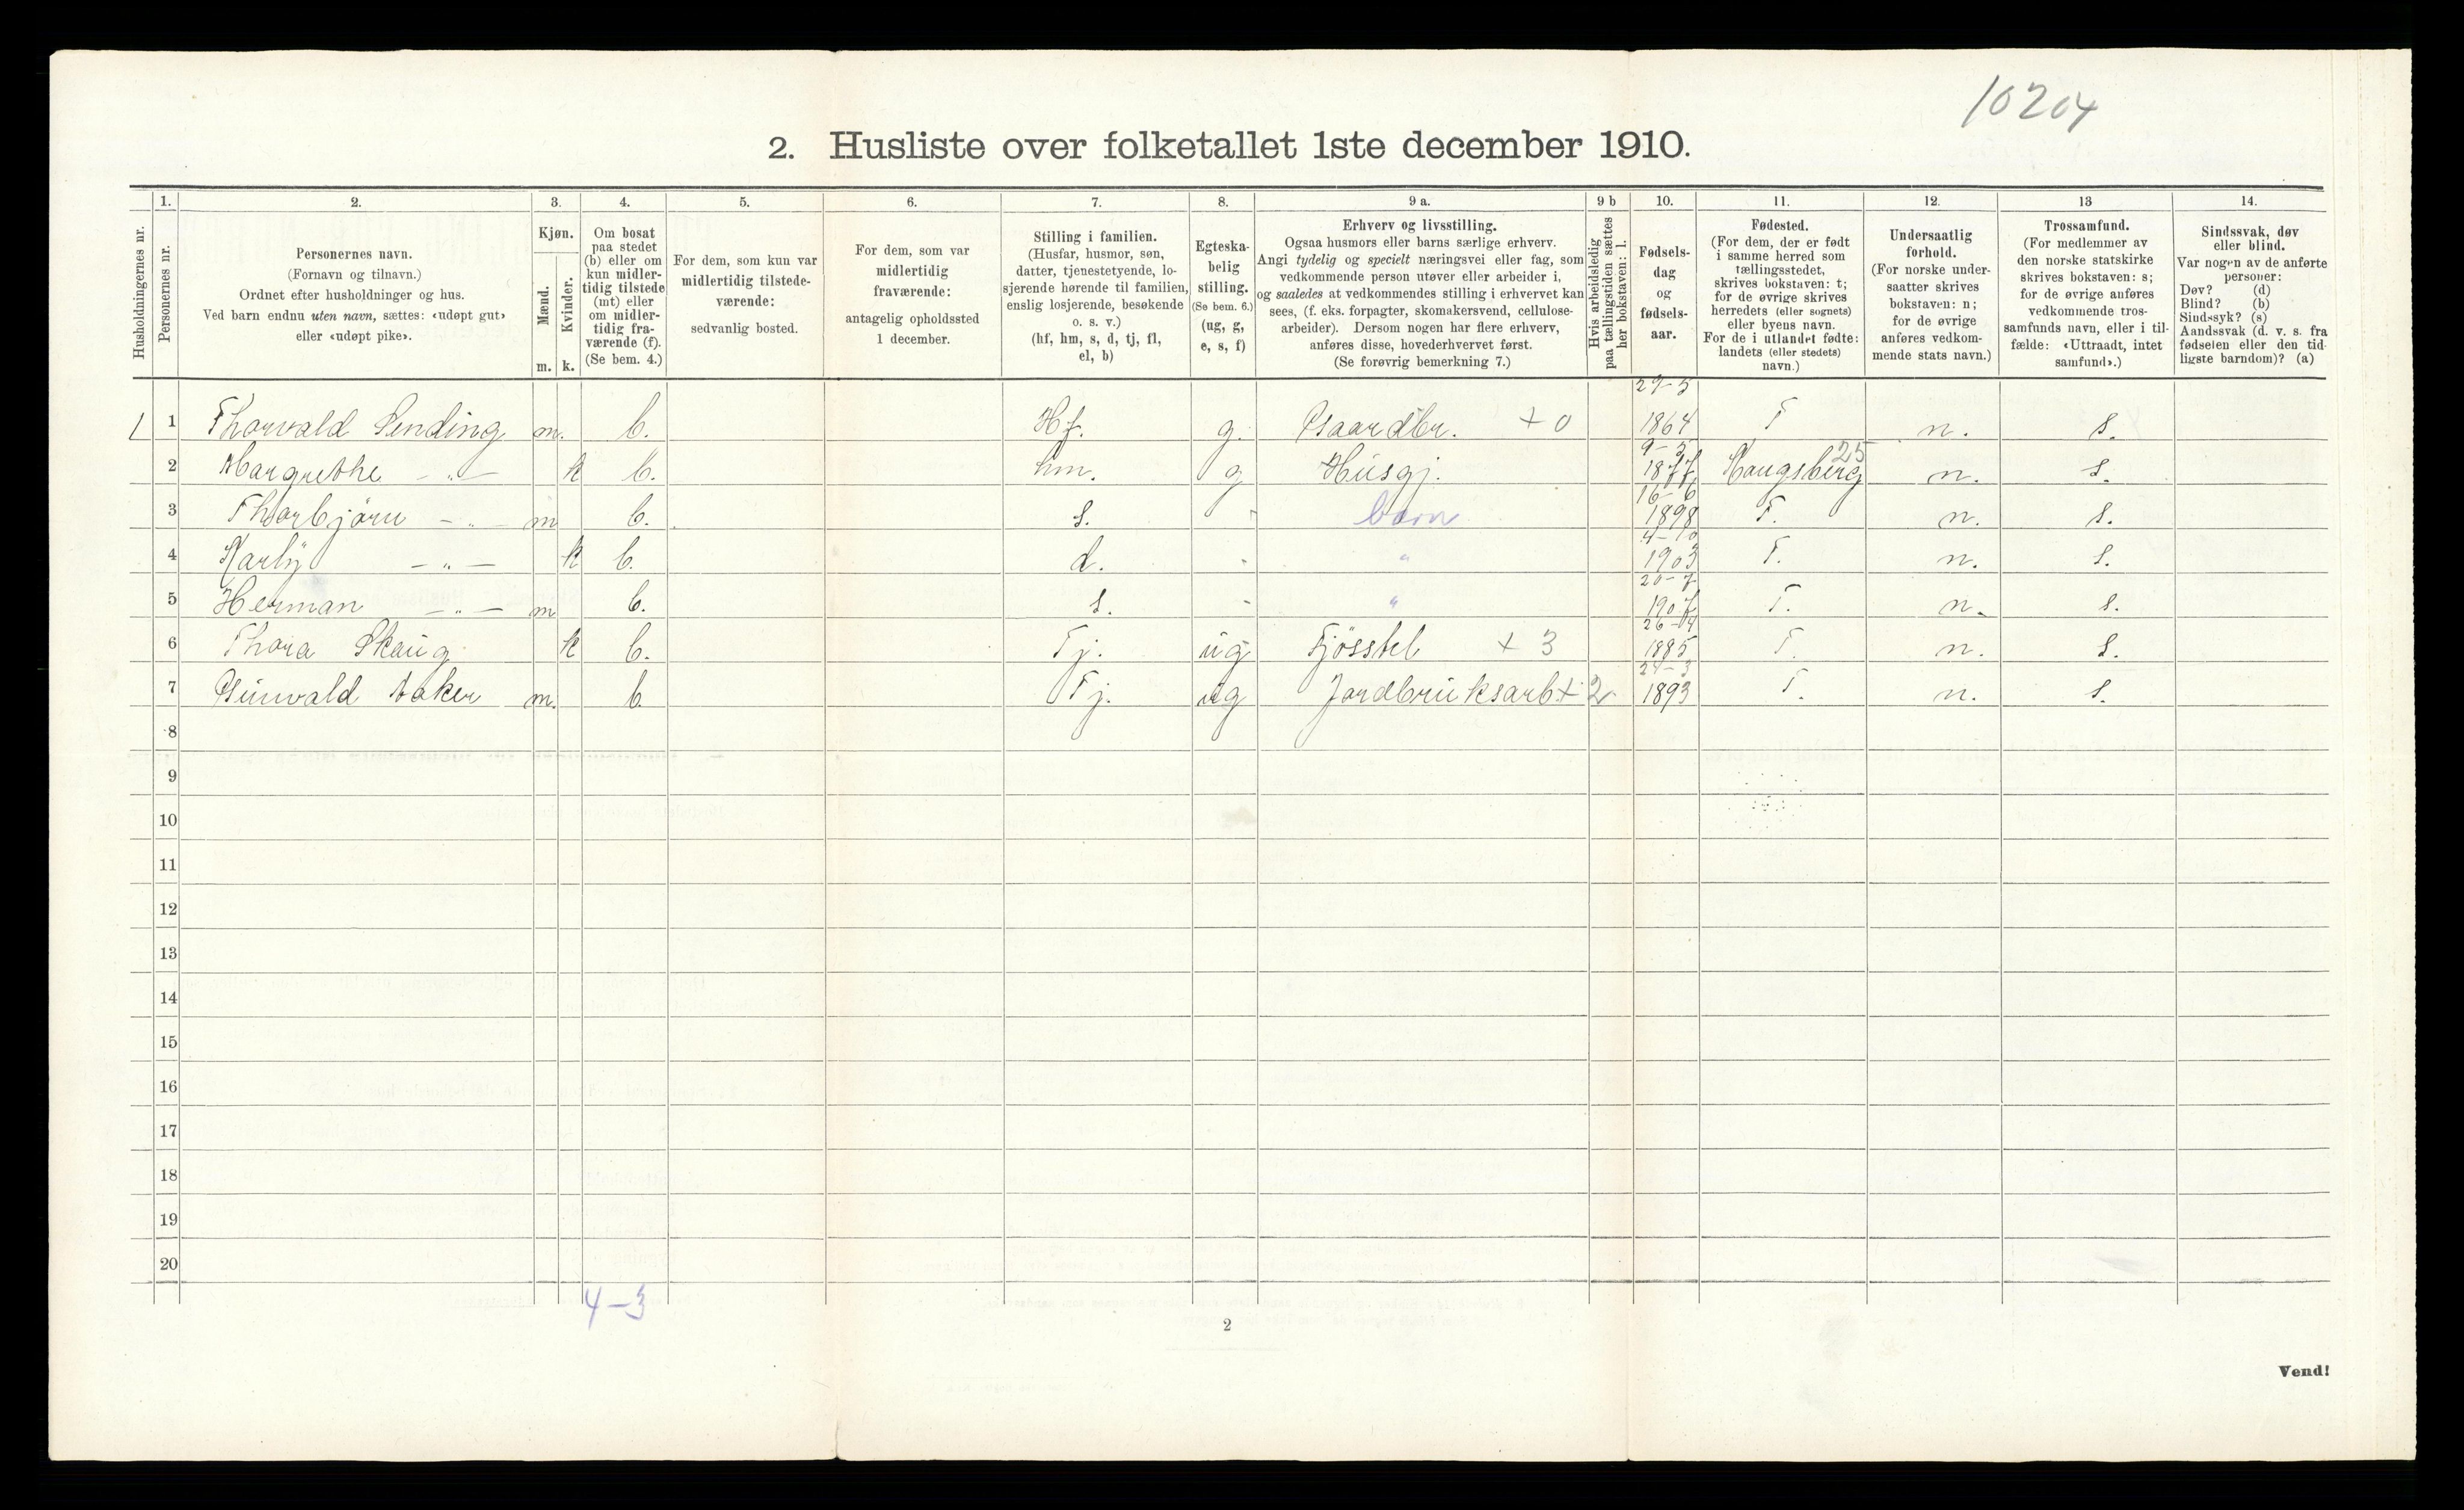 10204
2. Husliste over folketallet 1ste december 1910.
Husholdningernes nr.
1. 2. 3. 4. 5. 6. 7. 8. 9 a. 9 b 10. 11. 12. 13 14.
Personernes nr.
Personernes navn.
(Fornavn og tilnavn.)
Ordnet efter husholdninger og hus.
Ved barn endnu uten navn, sættes: «udøpt gut»
eller «udøpt pike».
Kjøn.
Mænd.
Kvinder.
m. k.
Om bosat
paa stedet
(b) eller om
kun midler-
tidig tilstede
(mt) eller
om midler-
tidig fra-
værende (f).
(Se bem. 4.)
For dem, som kun var
midlertidig tilstede-
værende:
sedvanlig bosted.
For dem, som var
midlertidig
fraværende:
antagelig opholdssted
1 december.
Stilling i familien.
(Husfar, husmor, søn,
datter, tjenestetyende, lo-
sjerende hørende til familien,
enslig losjerende, besøkende
o. s. v.)
(hf, hm, s, d, tj, fl,
el, b)
Egteska-
belig
stilling.
(Se bem. 6.)
(ug, g,
e, s, f)
Erhverv og livsstilling.
Ogsaa husmors eller barns særlige erhverv.
Angi tydelig og specielt næringsvei eller fag, som
vedkommende person utøver eller arbeider i,
og saaledes at vedkommendes stilling i erhvervet kan
sees, (f. eks. forpagter, skomakersvend, cellulose-
arbeider). Dersom nogen har flere erhverv,
anføres disse, hovederhvervet først.
(Se forøvrig bemerkning 7.)
Hvis arbeidsledig
paa tællingstiden sættes
her bokstaven: l.
Fødsels-
dag
og
fødsels-
aar.
Fødested.
(For dem, der er født
i samme herred som
tællingsstedet,
skrives bokstaven: t;
for de øvrige skrives
herredets (eller sognets)
eller byens navn.
For de i utlandet fødte:
landets (eller stedets)
navn.)
Undersaatlig
forhold.
(For norske under-
saatter skrives
bokstaven: n;
for de øvrige
anføres vedkom-
mende stats navn.)
Trossamfund.
(For medlemmer av
den norske statskirke
skrives bokstaven: s;
for de øvrige anføres
vedkommende tros-
samfunds navn, eller i til-
fælde: «Uttraadt, intet
samfund».)
Sindssvak, døv
eller blind.
Var nogen av de anførte
personer:
Døv? (d)
Blind? (b)
Sindssyk? (s)
Aandssvak (d. v. s. fra
fødselen eller den tid-
ligste barndom)? (a)
1 1 Thorvald Sending m. b. Hf. g. Gaardbr. + 0 29-5 1864 T n. s.
2 Margrethe -„- k b. hm. g Husgj. 9-5 1877 Kongsberg 25 n. s.
3 Thorbjørn -„- m b. s. - barn 16-6 1898 T. n. s.
4 Karly -„- k b. d. - " 4-10 1903 T. n. s.
5 Herman -„- m b. s. - " 20-7 1907 T. n. s.
6 Thora Skaug k b. Tj. ug Fjösstel + 3 26-4 1885 T. n. s.
7 Gunvald Aaker m. b. Tj. ug Jordbruksarb + 2 24-3 1893 T. n. s.
8
9
10
11
12
13
14
15
16
17
18
19
20
4-3
2
Vend!